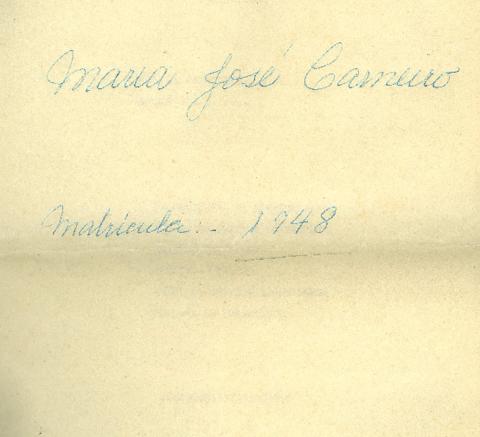 Maria José Carneiro
Matrícula. - 1948